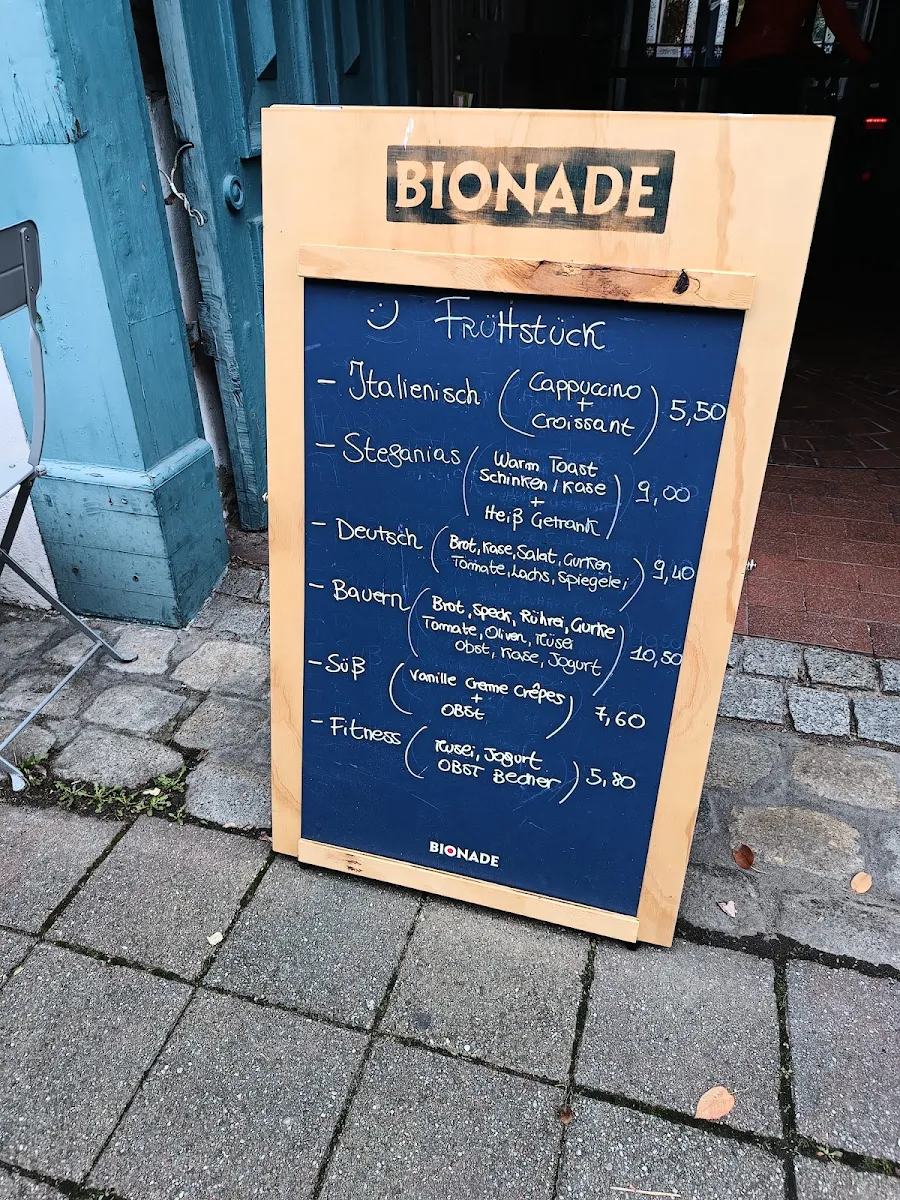 BIONADE
:) FRÜHstück
- Italienisch (Cappuccino + Croissant) 5,50
- Stefanias (Warm Toast
Schinken / Käse
+
Heiß Getränk) 9,00
- Deutsch (Brot, Käse, Salat, Gurken
Tomate, Lachs, Spiegelei) 9,40
- Bauern (Brot, Speck, Rührei, Gurke
Tomate, Oliven, Müsei
Obst, Käse, Jogurt) 10,50
- Süß (Vanille Creme Crêpes
+
OBSt) 7,60
- Fitness (Müsei, Jogurt
OBST Becher) 5,80
BIONADE